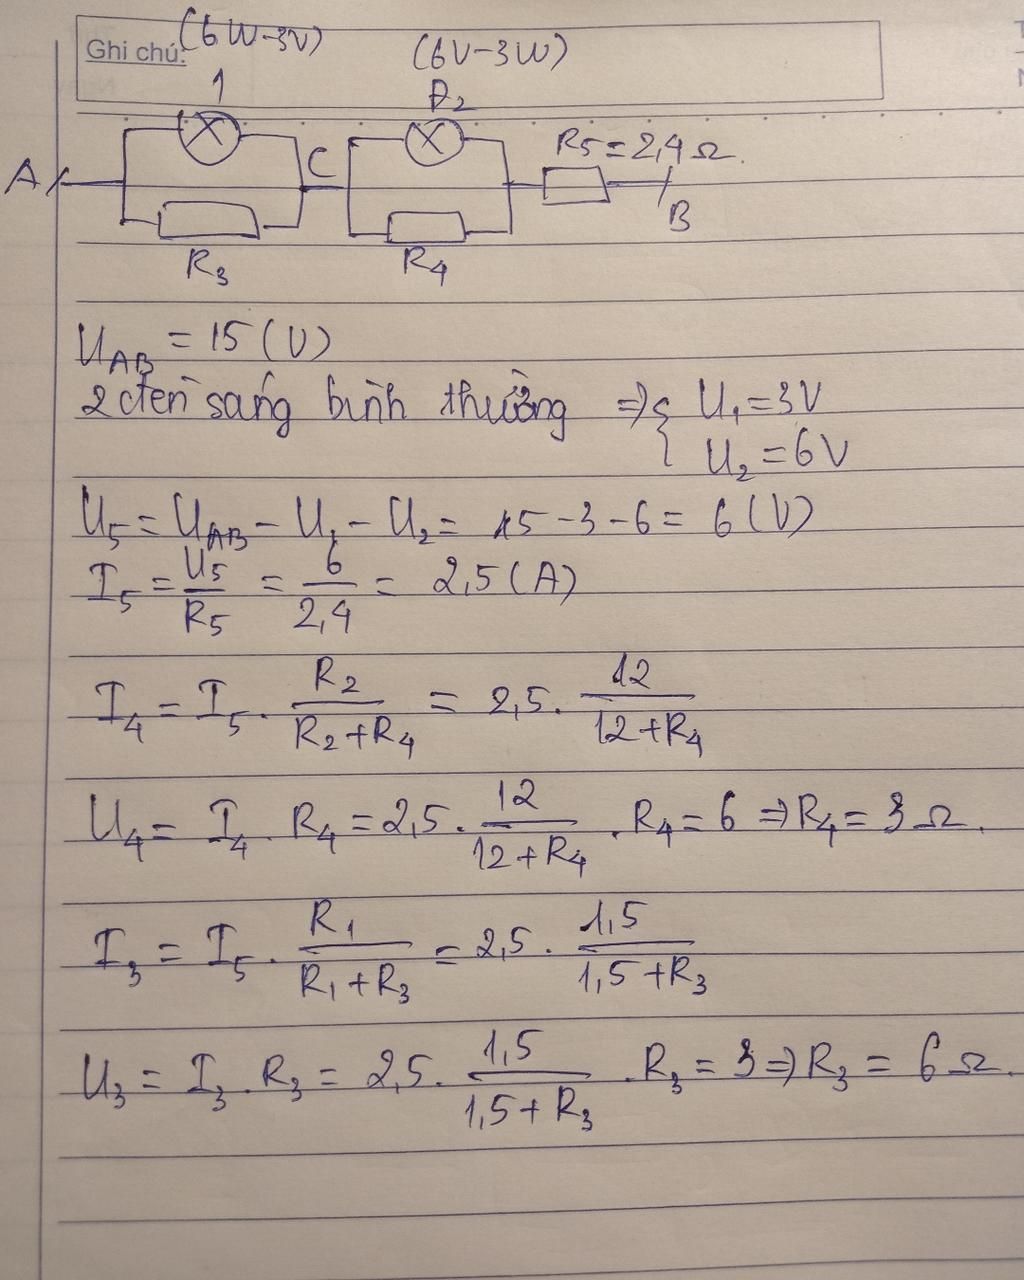 Ghi chú: (6W-3V) (6V-3W)
1 Đ2
A C R5 = 2,4 Ω.
B
R3 R4
U_AB = 15 (V)
2 đèn sáng bình thường => { U1 = 3V
U2 = 6V
U5 = U_AB - U1 - U2 = 15 - 3 - 6 = 6 (V)
I5 = U5/R5 = 6/2,4 = 2,5 (A)
I4 = I5 . R2/(R2+R4) = 2,5 . 12/(12+R4)
U4 = I4 . R4 = 2,5 . 12/(12+R4) . R4 = 6 => R4 = 3 Ω.
I3 = I5 . R1/(R1+R3) = 2,5 . 1,5/(1,5+R3)
U3 = I3 . R3 = 2,5 . 1,5/(1,5+R3) . R3 = 3 => R3 = 6 Ω.